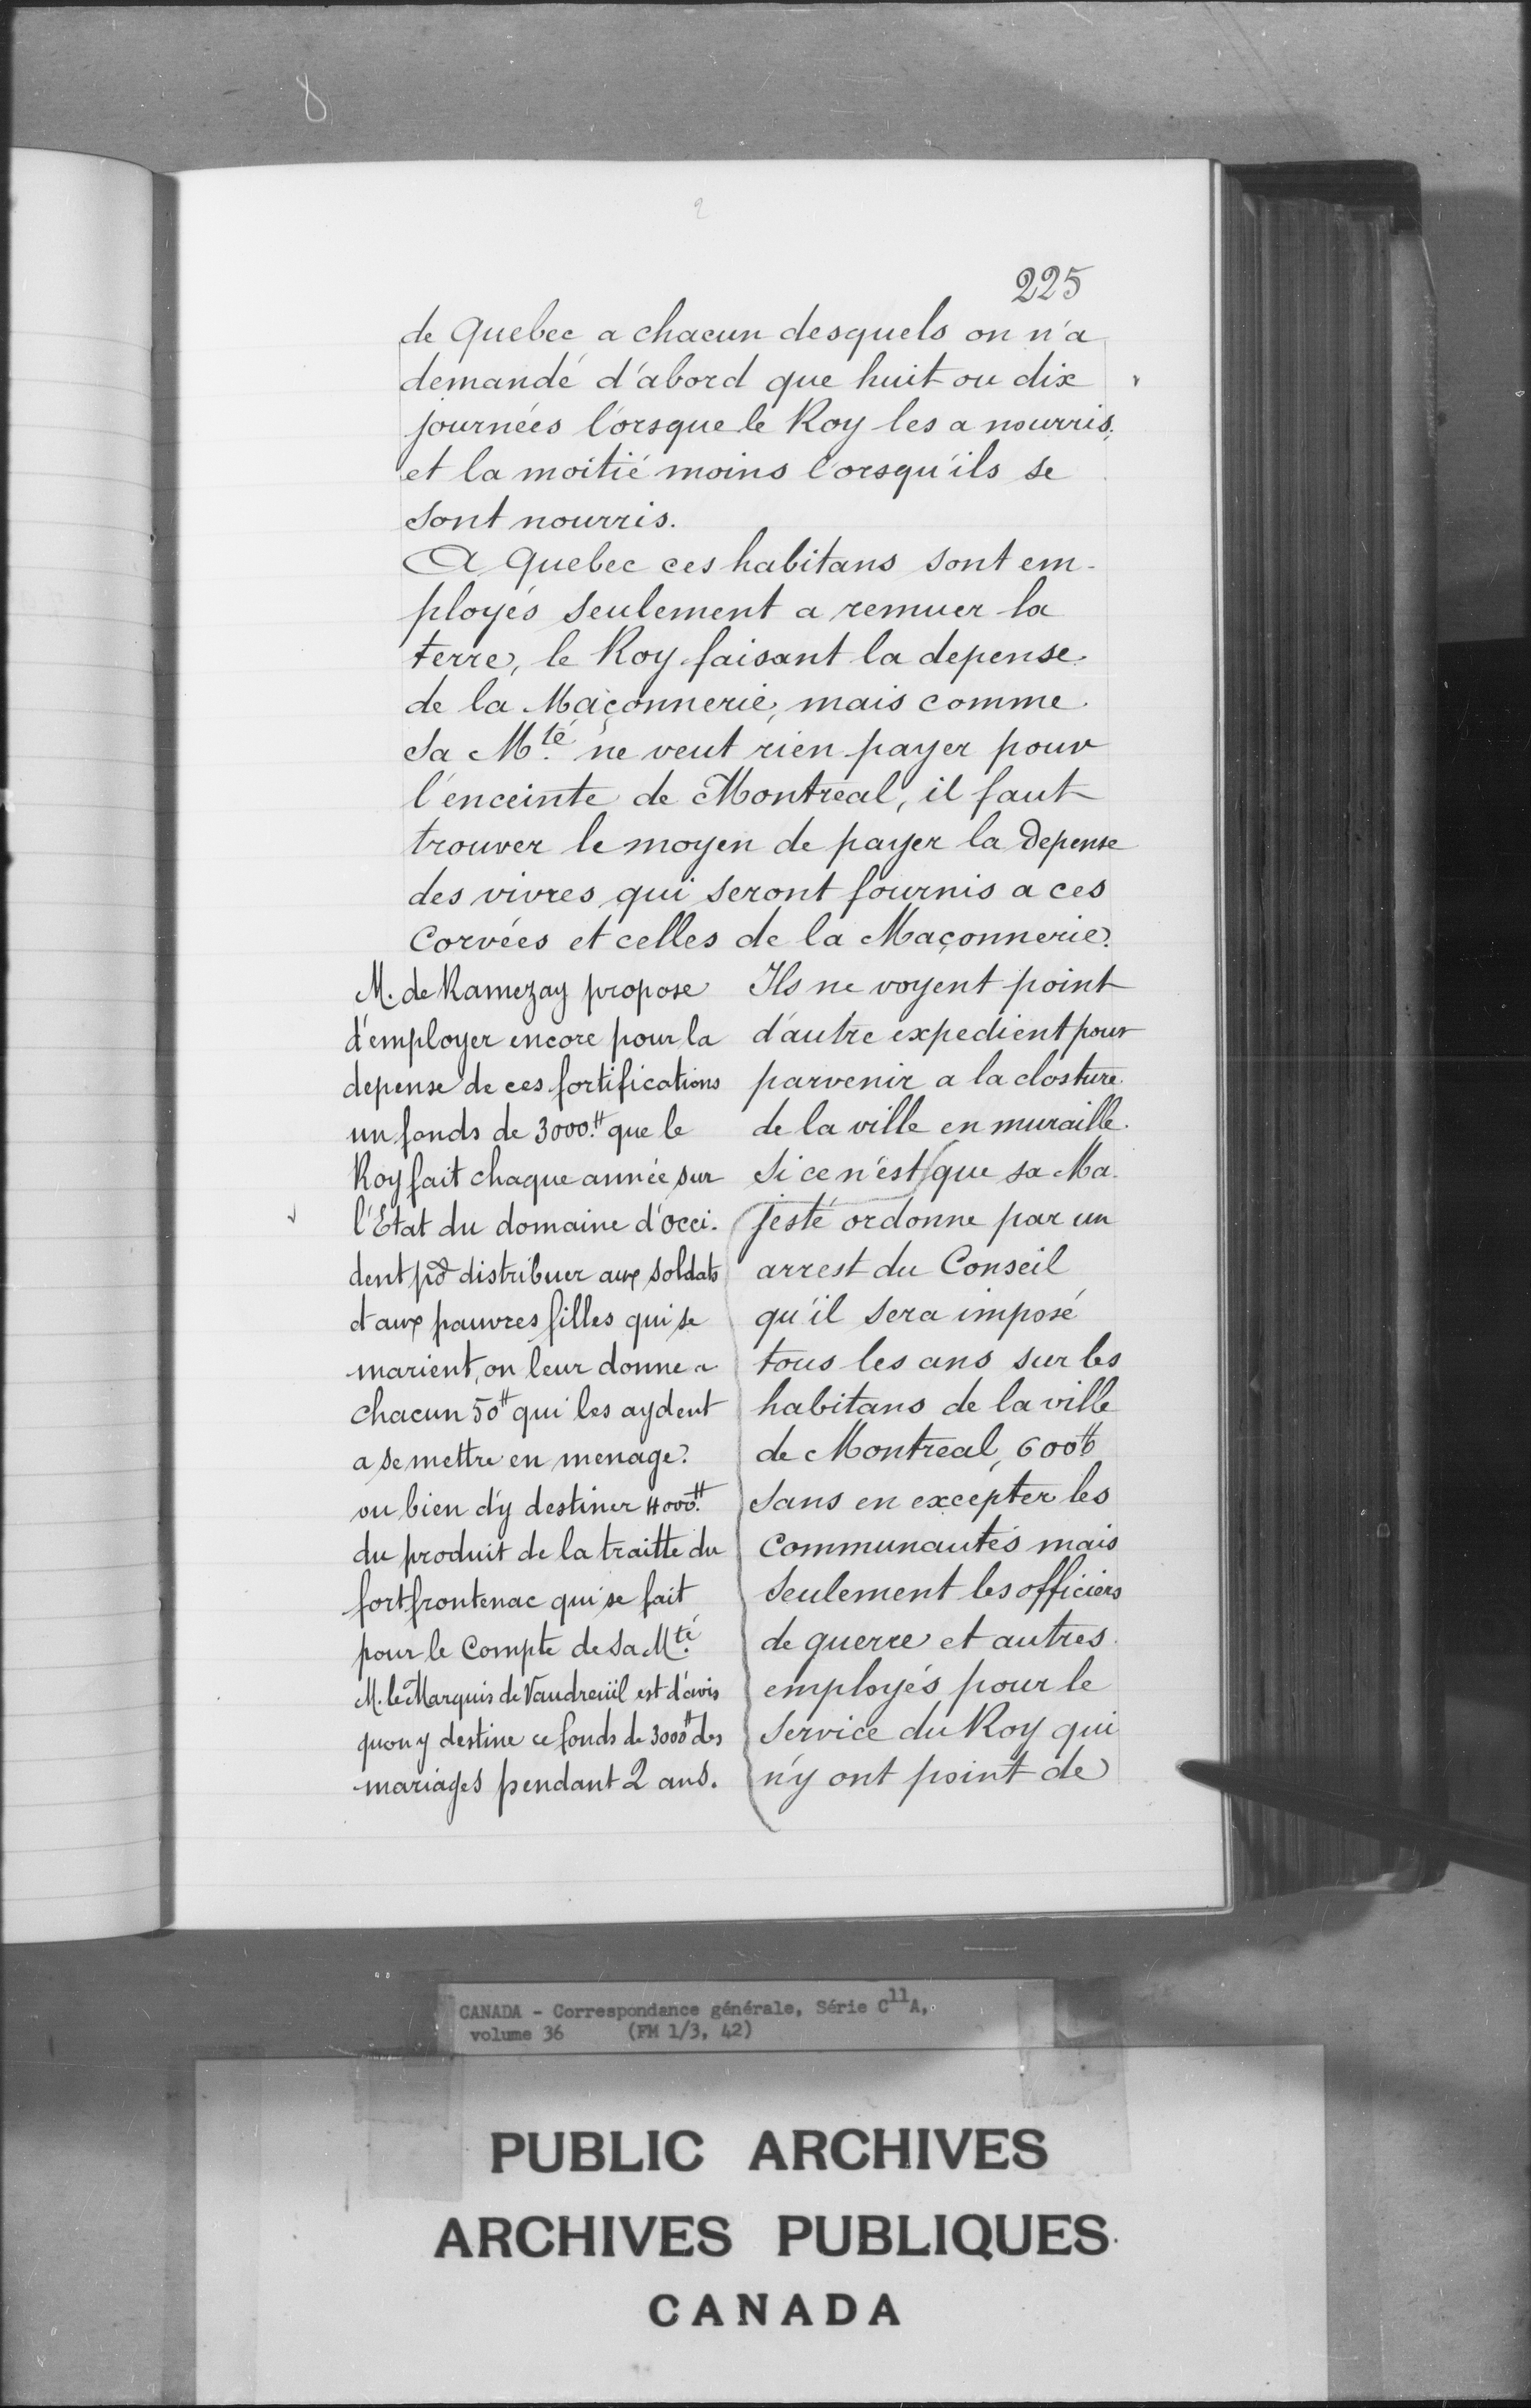 8
2
225
de Quebec a chacun desquels on n'a
demandé d'abord que huit ou dix
journées l'orsque le Roy les a nourris,
et la moitié moins l'orsqu'ils se
sont nourris.
A Quebec ces habitans sont em-
ployés seulement a remuer la
terre, le Roy faisant la depense
de la Maçonnerie, mais comme
Sa M.té ne veut rien payer pour
l'enceinte de Montreal, il faut
trouver le moyen de payer la depense
des vivres qui seront fournis a ces
Corvées et celles de la Maçonnerie.
M. de Ramezay propose
d'employer encore pour la
depense de ces fortifications
un fonds de 3000.tt que le
Roy fait chaque année sur
l'Etat du domaine d'occi-
dent pr distribuer aux soldats
et aux pauvres filles qui se
marient, on leur donne a
chacun 50tt qui les aydent
a se mettre en menage.
ou bien d'y destiner 4000.tt
du produit de la traitte du
fort frontenac qui se fait
pour le Compte de Sa M.té
M. le Marquis de Vaudreüil est d'avis
quon y destine ce fonds de 3000tt des
mariages pendant 2 ans.
Ils ne voyent point
d'autre expedient pour
parvenir a la closture
de la ville en muraille.
Si ce n'est que sa Ma-
jesté ordonne par un
arrest du Conseil
qu'il sera imposé
tous les ans sur les
habitans de la ville
de Montreal, 600tt
sans en excepter les
Communautés mais
seulement les officiers
de guerre et autres
employés pour le
Service du Roy qui
n'y ont point de
CANADA - Correspondance générale, Série C11A,
volume 36 (FM 1/3, 42)
PUBLIC ARCHIVES
ARCHIVES PUBLIQUES
CANADA